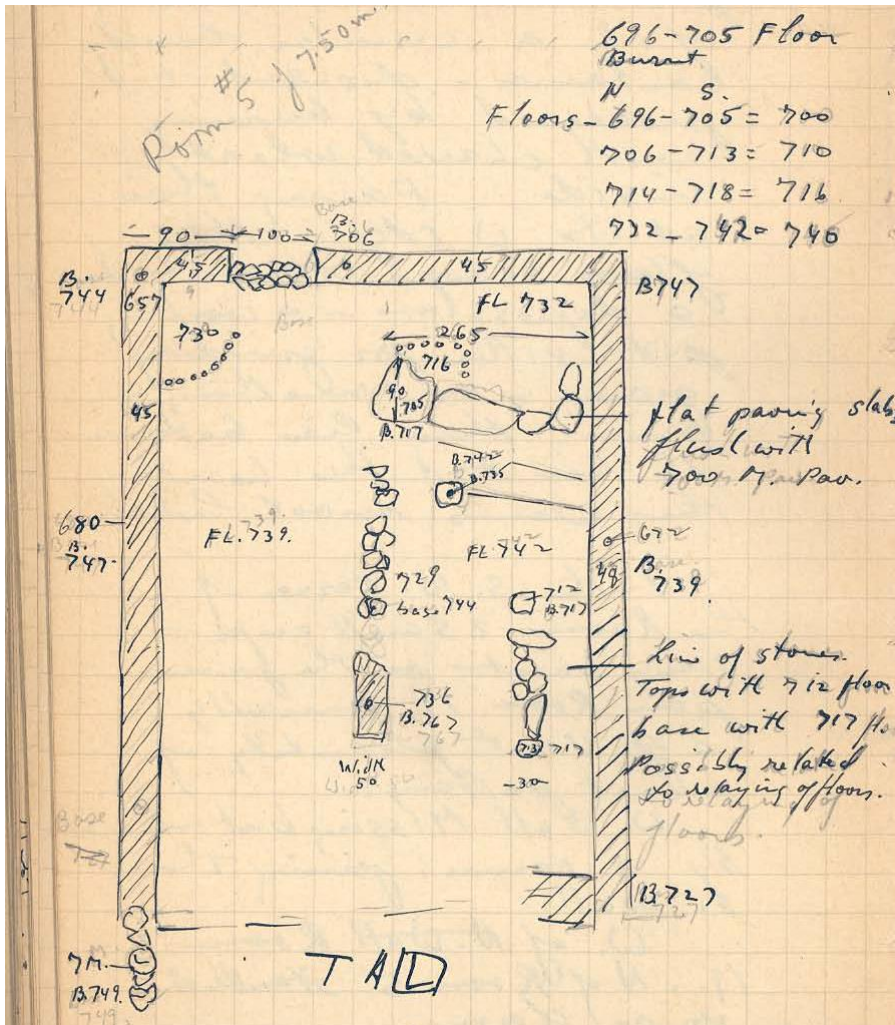 Room #5 of 7.50 m.
696-705 Floor
Burnt
N S.
Floors - 696-705 = 700
706-713 = 710
714-718 = 716
732 - 742 = 740
90
100
Base
B.
706
B.
744
657
45
45
B747
FL 732
730
265
716
90
705
B.717
flat paving slabs
flush with
700 M. Pav.
B.742
B.735
45
680
B.
747
FL. 739.
FL 742
672
B.
739
48
729
base 744
712
B.717
Line of stones.
Tops with 712 floor
base with 717 flo
Possibly related
to relaying of floors.
736
B.767
713
717
Width
50
30
Base
B727
7M.
B.749.
TAD